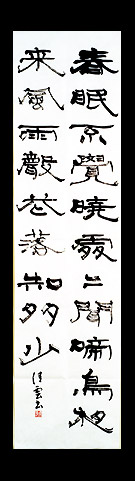 春眠不覺曉處々聞啼鳥夜
来風雨聲花落知多少